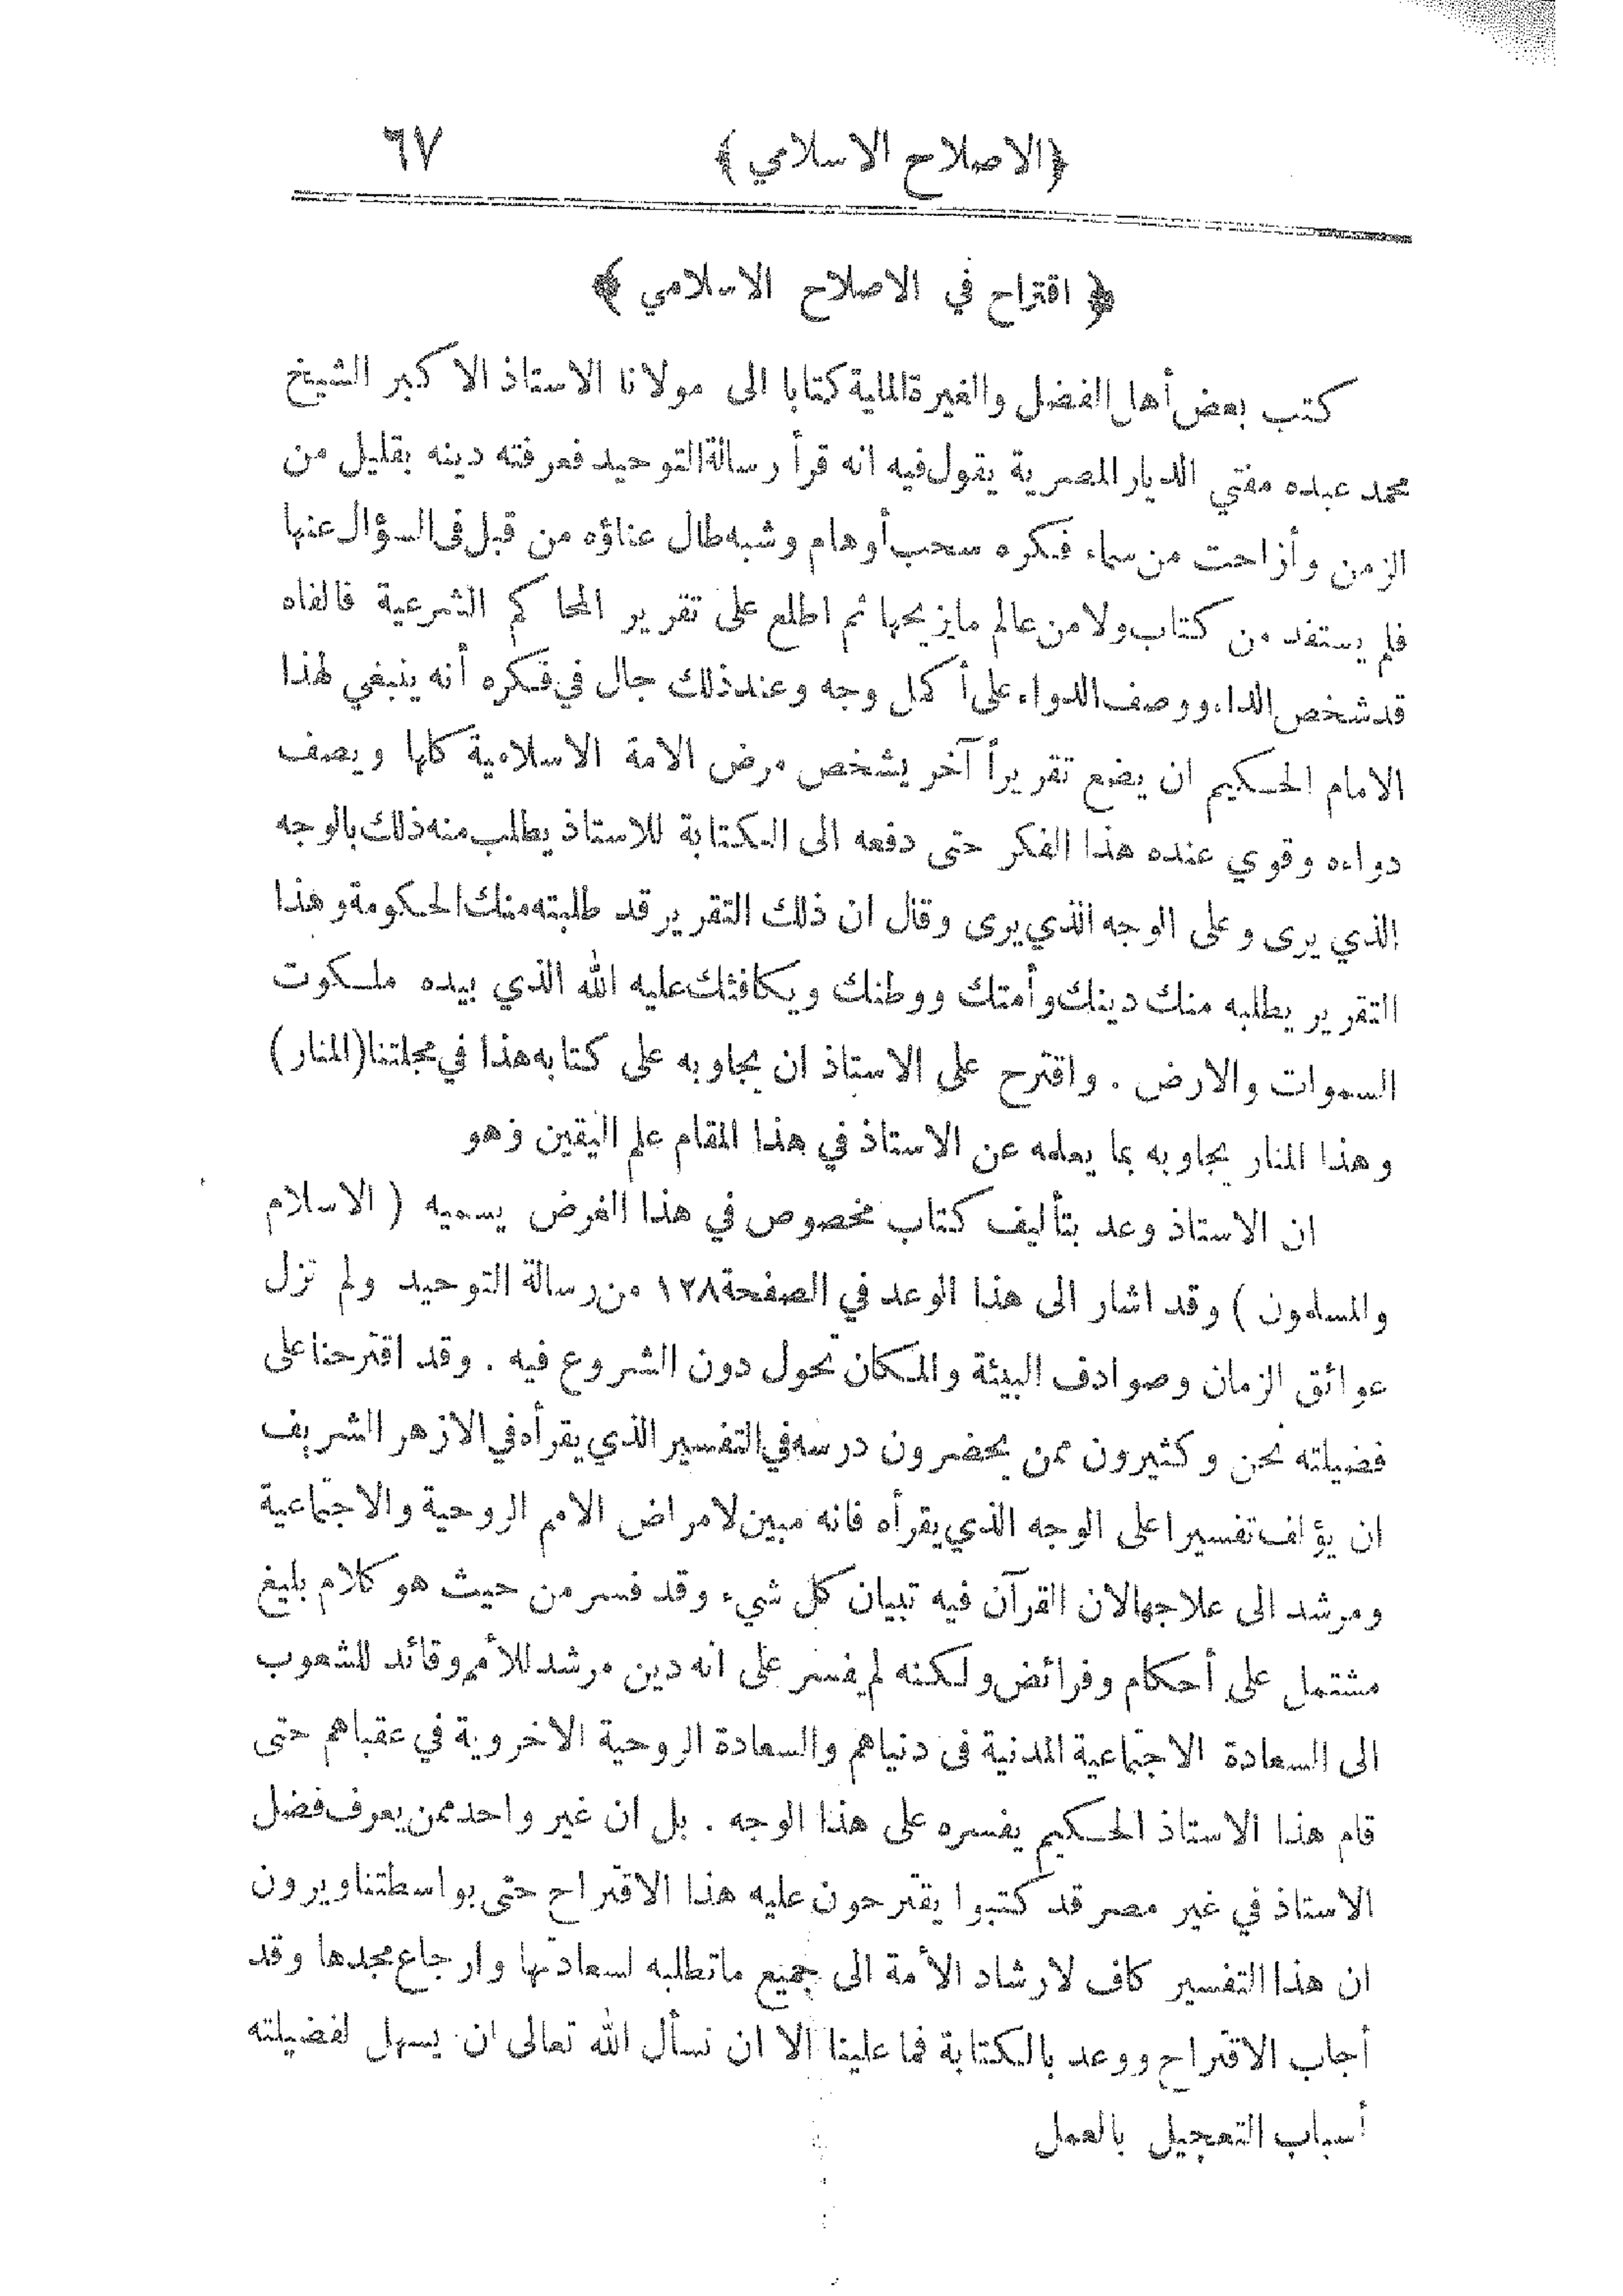 ﴿الاصلاح الاسلامي﴾ ٦٧
﴿ اقتراح في الاصلاح الاسلامي ﴾
كتب بعض أهل الفضل والغيرة المالية كتابا الى مولانا الاستاذ الاكبر الشيخ
محمد عبده مفتي الديار المصرية يقول فيه انه قرأ رسالة التوحيد فعرفته دينه بقليل من
الزمن وأزاحت من سماء فكره سحب أوهام وشبه طال عناؤه من قبل فى السؤال عنها
فلم يستفد من كتاب ولا من عالم مايزيحها ثم اطلع على تقرير المحاكم الشرعية فالفاه
قد شخص الداء ووصف الدواء على أكمل وجه وعند ذلك جال في فكره أنه ينبغي لهذا
الامام الحكيم ان يضع تقريراً آخر يشخص مرض الامة الاسلامية كلها ويصف
دواءه وقوي عنده هذا الفكر حتى دفعه الى الكتابة للاستاذ يطلب منه ذلك بالوجه
الذي يرى وعلى الوجه الذي يرى وقال ان ذلك التقرير قد طلبته منك الحكومة وهذا
التقرير يطلبه منك دينك وأمتك ووطنك ويكافئك عليه الله الذي بيده ملكوت
السموات والارض . واقترح على الاستاذ ان يجاوبه على كتابه هذا في مجلتنا (المنار)
وهذا المنار يجاوبه بما يعلمه عن الاستاذ في هذا المقام علم اليقين وهو
ان الاستاذ وعد بتأليف كتاب مخصوص في هذا الغرض يسميه ( الاسلام
والمسلمون ) وقد اشار الى هذا الوعد في الصفحة ١٢٨ من رسالة التوحيد ولم تزل
عوائق الزمان وصوادف البيئة والمكان تحول دون الشروع فيه . وقد اقترحنا على
فضيلته نحن وكثيرون ممن يحضرون درسه في التفسير الذي يقرأه في الازهر الشريف
ان يؤلف تفسيرا على الوجه الذي يقرأه فانه مبين لامراض الامم الروحية والاجتماعية
ومرشد الى علاجها لان القرآن فيه تبيان كل شيء وقد فسر من حيث هو كلام بليغ
مشتمل على أحكام وفرائض ولكنه لم يفسر على انه دين مرشد للأمم وقائد للشعوب
الى السعادة الاجتماعية المدنية فى دنياهم والسعادة الروحية الاخروية في عقباهم حتى
قام هذا الاستاذ الحكيم يفسره على هذا الوجه . بل ان غير واحد ممن يعرف فضل
الاستاذ في غير مصر قد كتبوا يقترحون عليه هذا الاقتراح حتى بواسطتنا ويرون
ان هذا التفسير كاف لارشاد الأمة الى جميع ماتطلبه لسعادتها وارجاع مجدها وقد
أجاب الاقتراح ووعد بالكتابة فما علينا الا ان نسأل الله تعالى ان يسهل لفضيلته
أسباب التعجيل بالعمل